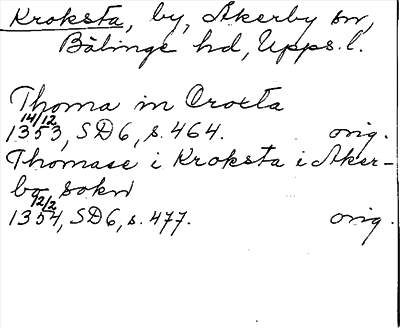 Kroksta, by, Åkerby sn,
Bälinge hd, Upps. l.
Thoma in Crocta
14/12
1353, SD6, s. 464. orig.
Thomase i Kroksta i Aker-
bo sokn
2/2
1354, SD6, s. 477. orig.